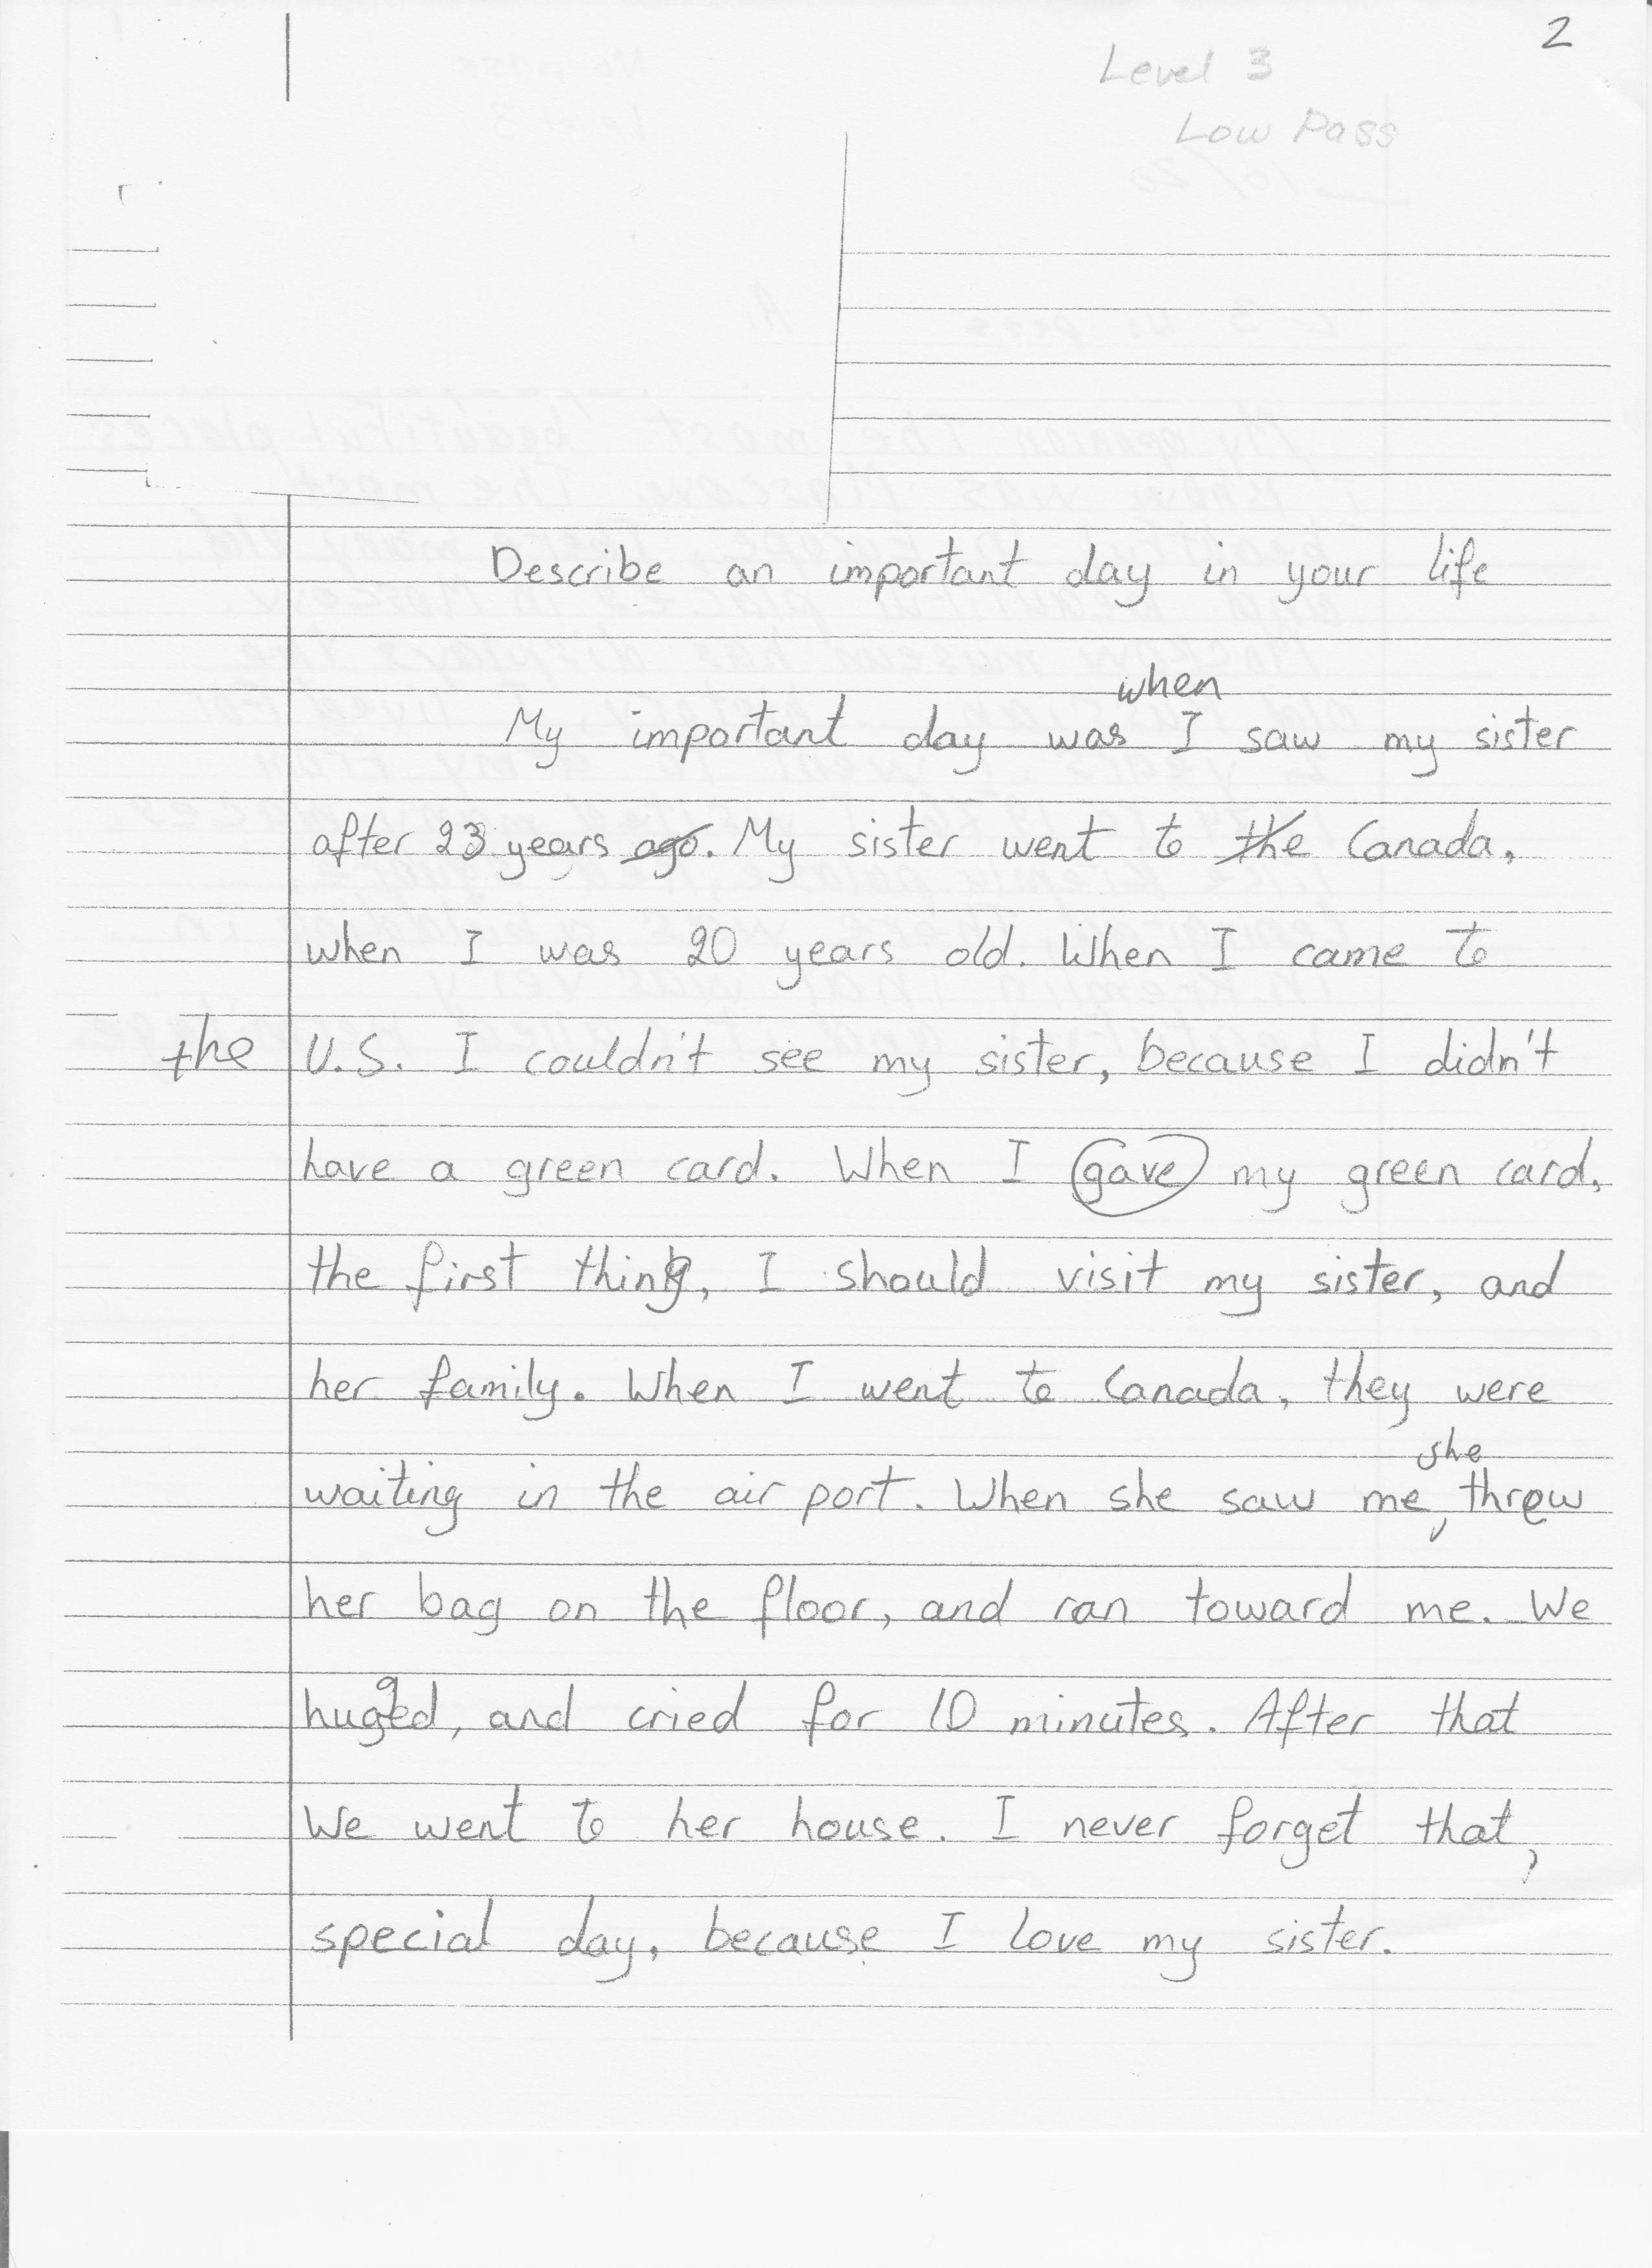 2
Level 3
Low Pass
Describe an important day in your life
when
My important day was I saw my sister
after 23 years ago. My sister went to the Canada,
when I was 20 years old. When I came to
the U.S. I couldn't see my sister, because I didn't
have a green card. When I gave my green card,
the first thing, I should visit my sister, and
her family. When I went to Canada, they were
she
waiting in the air port. When she saw me, threw
her bag on the floor, and ran toward me. We
hugged, and cried for 10 minutes. After that
We went to her house. I never forget that,
special day, because I love my sister.